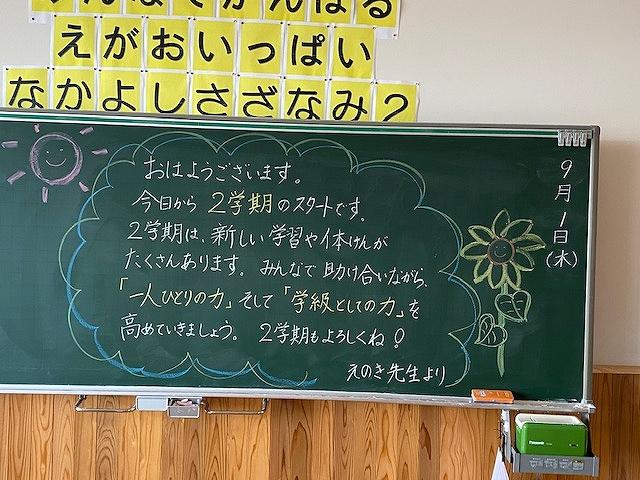 みんなでがんばる
えがおいっぱい
なかよしさざなみ2
おはようございます。
今日から 2学期のスタートです。
2学期は、新しい学習や体けんが
たくさんあります。 みんなで助け合いながら、
「一人ひとりの力」そして「学級としての力」を
高めていきましょう。 2学期もよろしくね!
えのき先生より
9月1日(木)
Panasonic